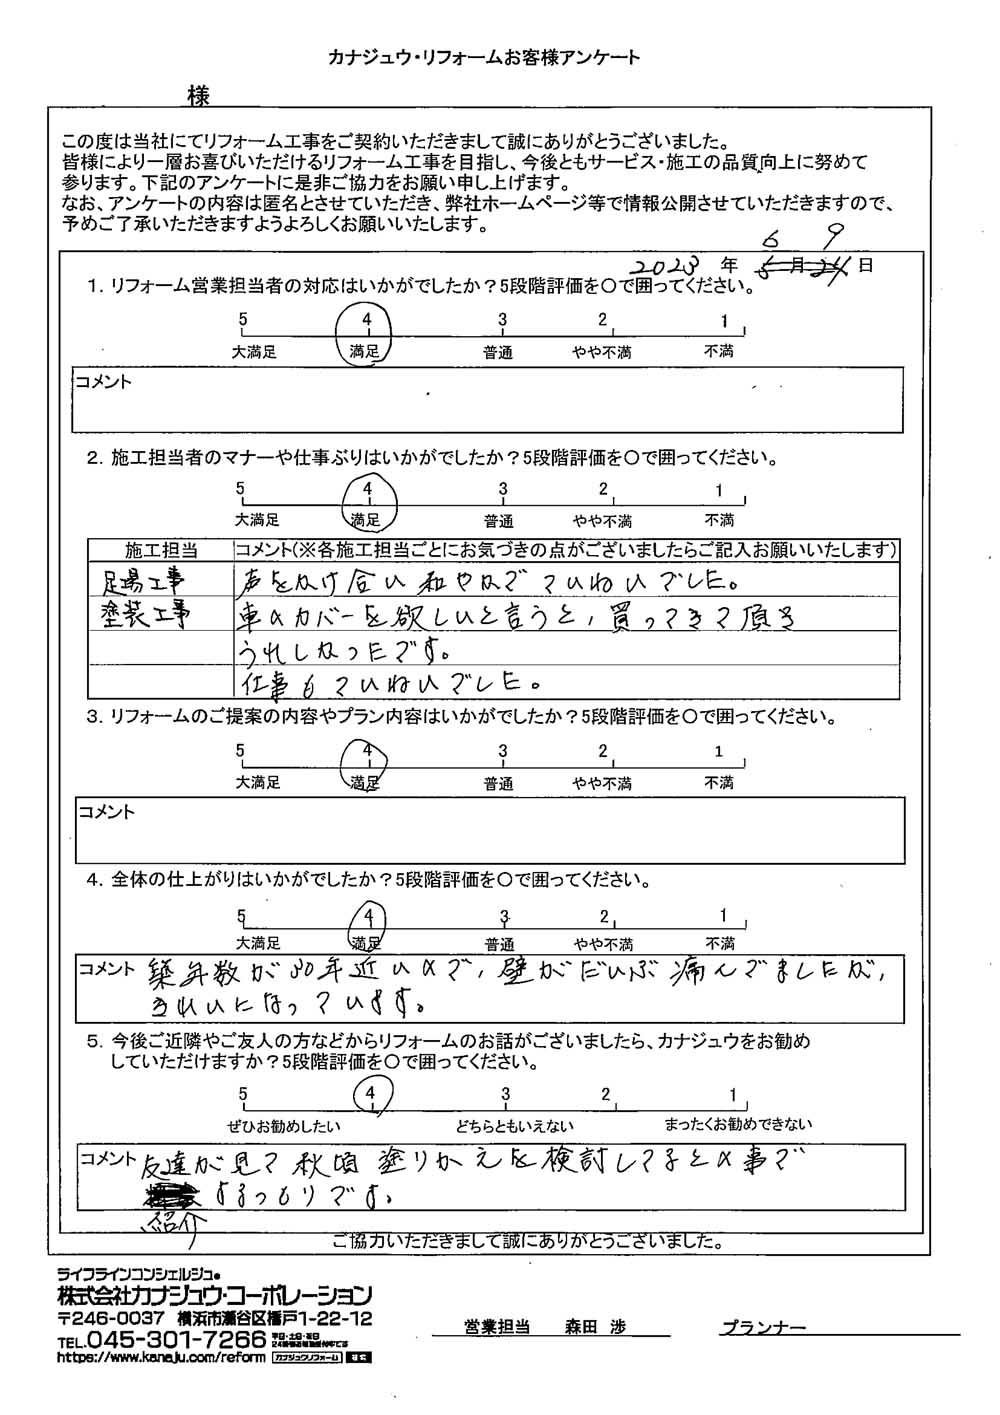 カナジュウ・リフォームお客様アンケート
様
この度は当社にてリフォーム工事をご契約いただきまして誠にありがとうございました。
皆様により一層お喜びいただけるリフォーム工事を目指し、今後ともサービス・施工の品質向上に努めて
参ります。下記のアンケートに是非ご協力をお願い申し上げます。
なお、アンケートの内容は匿名とさせていただき、弊社ホームページ等で情報公開させていただきますので、
予めご了承いただきますようよろしくお願いいたします。
6 9
2023 年 5月24日
1. リフォーム営業担当者の対応はいかがでしたか?5段階評価を〇で囲ってください。
5 4 3 2 1
大満足 満足 普通 やや不満 不満
コメント
2. 施工担当者のマナーや仕事ぶりはいかがでしたか?5段階評価を〇で囲ってください。
5 4 3 2 1
大満足 満足 普通 やや不満 不満
施工担当 コメント(※各施工担当ごとにお気づきの点がございましたらご記入お願いいたします)
足場工事 声をかけ合い和やかでていねいでした。
塗装工事 車のカバーを欲しいと言うと,買ってきて頂き
うれしかったです。
仕事もていねいでした。
3. リフォームのご提案の内容やプラン内容はいかがでしたか?5段階評価を〇で囲ってください。
5 4 3 2 1
大満足 満足 普通 やや不満 不満
コメント
4. 全体の仕上がりはいかがでしたか?5段階評価を〇で囲ってください。
5 4 3 2 1
大満足 満足 普通 やや不満 不満
コメント 築年数が30年近いので,壁がだいぶ痛んでましたが,
きれいになっています。
5. 今後ご近隣やご友人の方などからリフォームのお話がございましたら、カナジュウをお勧め
していただけますか?5段階評価を〇で囲ってください。
5 4 3 2 1
ぜひお勧めしたい どちらともいえない まったくお勧めできない
コメント 友達が見て秋頃塗りかえを検討してるとの事で
するつもりです。
紹介
ご協力いただきまして誠にありがとうございました。
ライフラインコンシェルジュ
株式会社カナジュウ・コーポレーション
〒246-0037 横浜市瀬谷区橋戸1-22-12
TEL.045-301-7266
https://www.kanaju.com/reform カナジュウリフォーム 検索
営業担当 森田 渉
プランナー